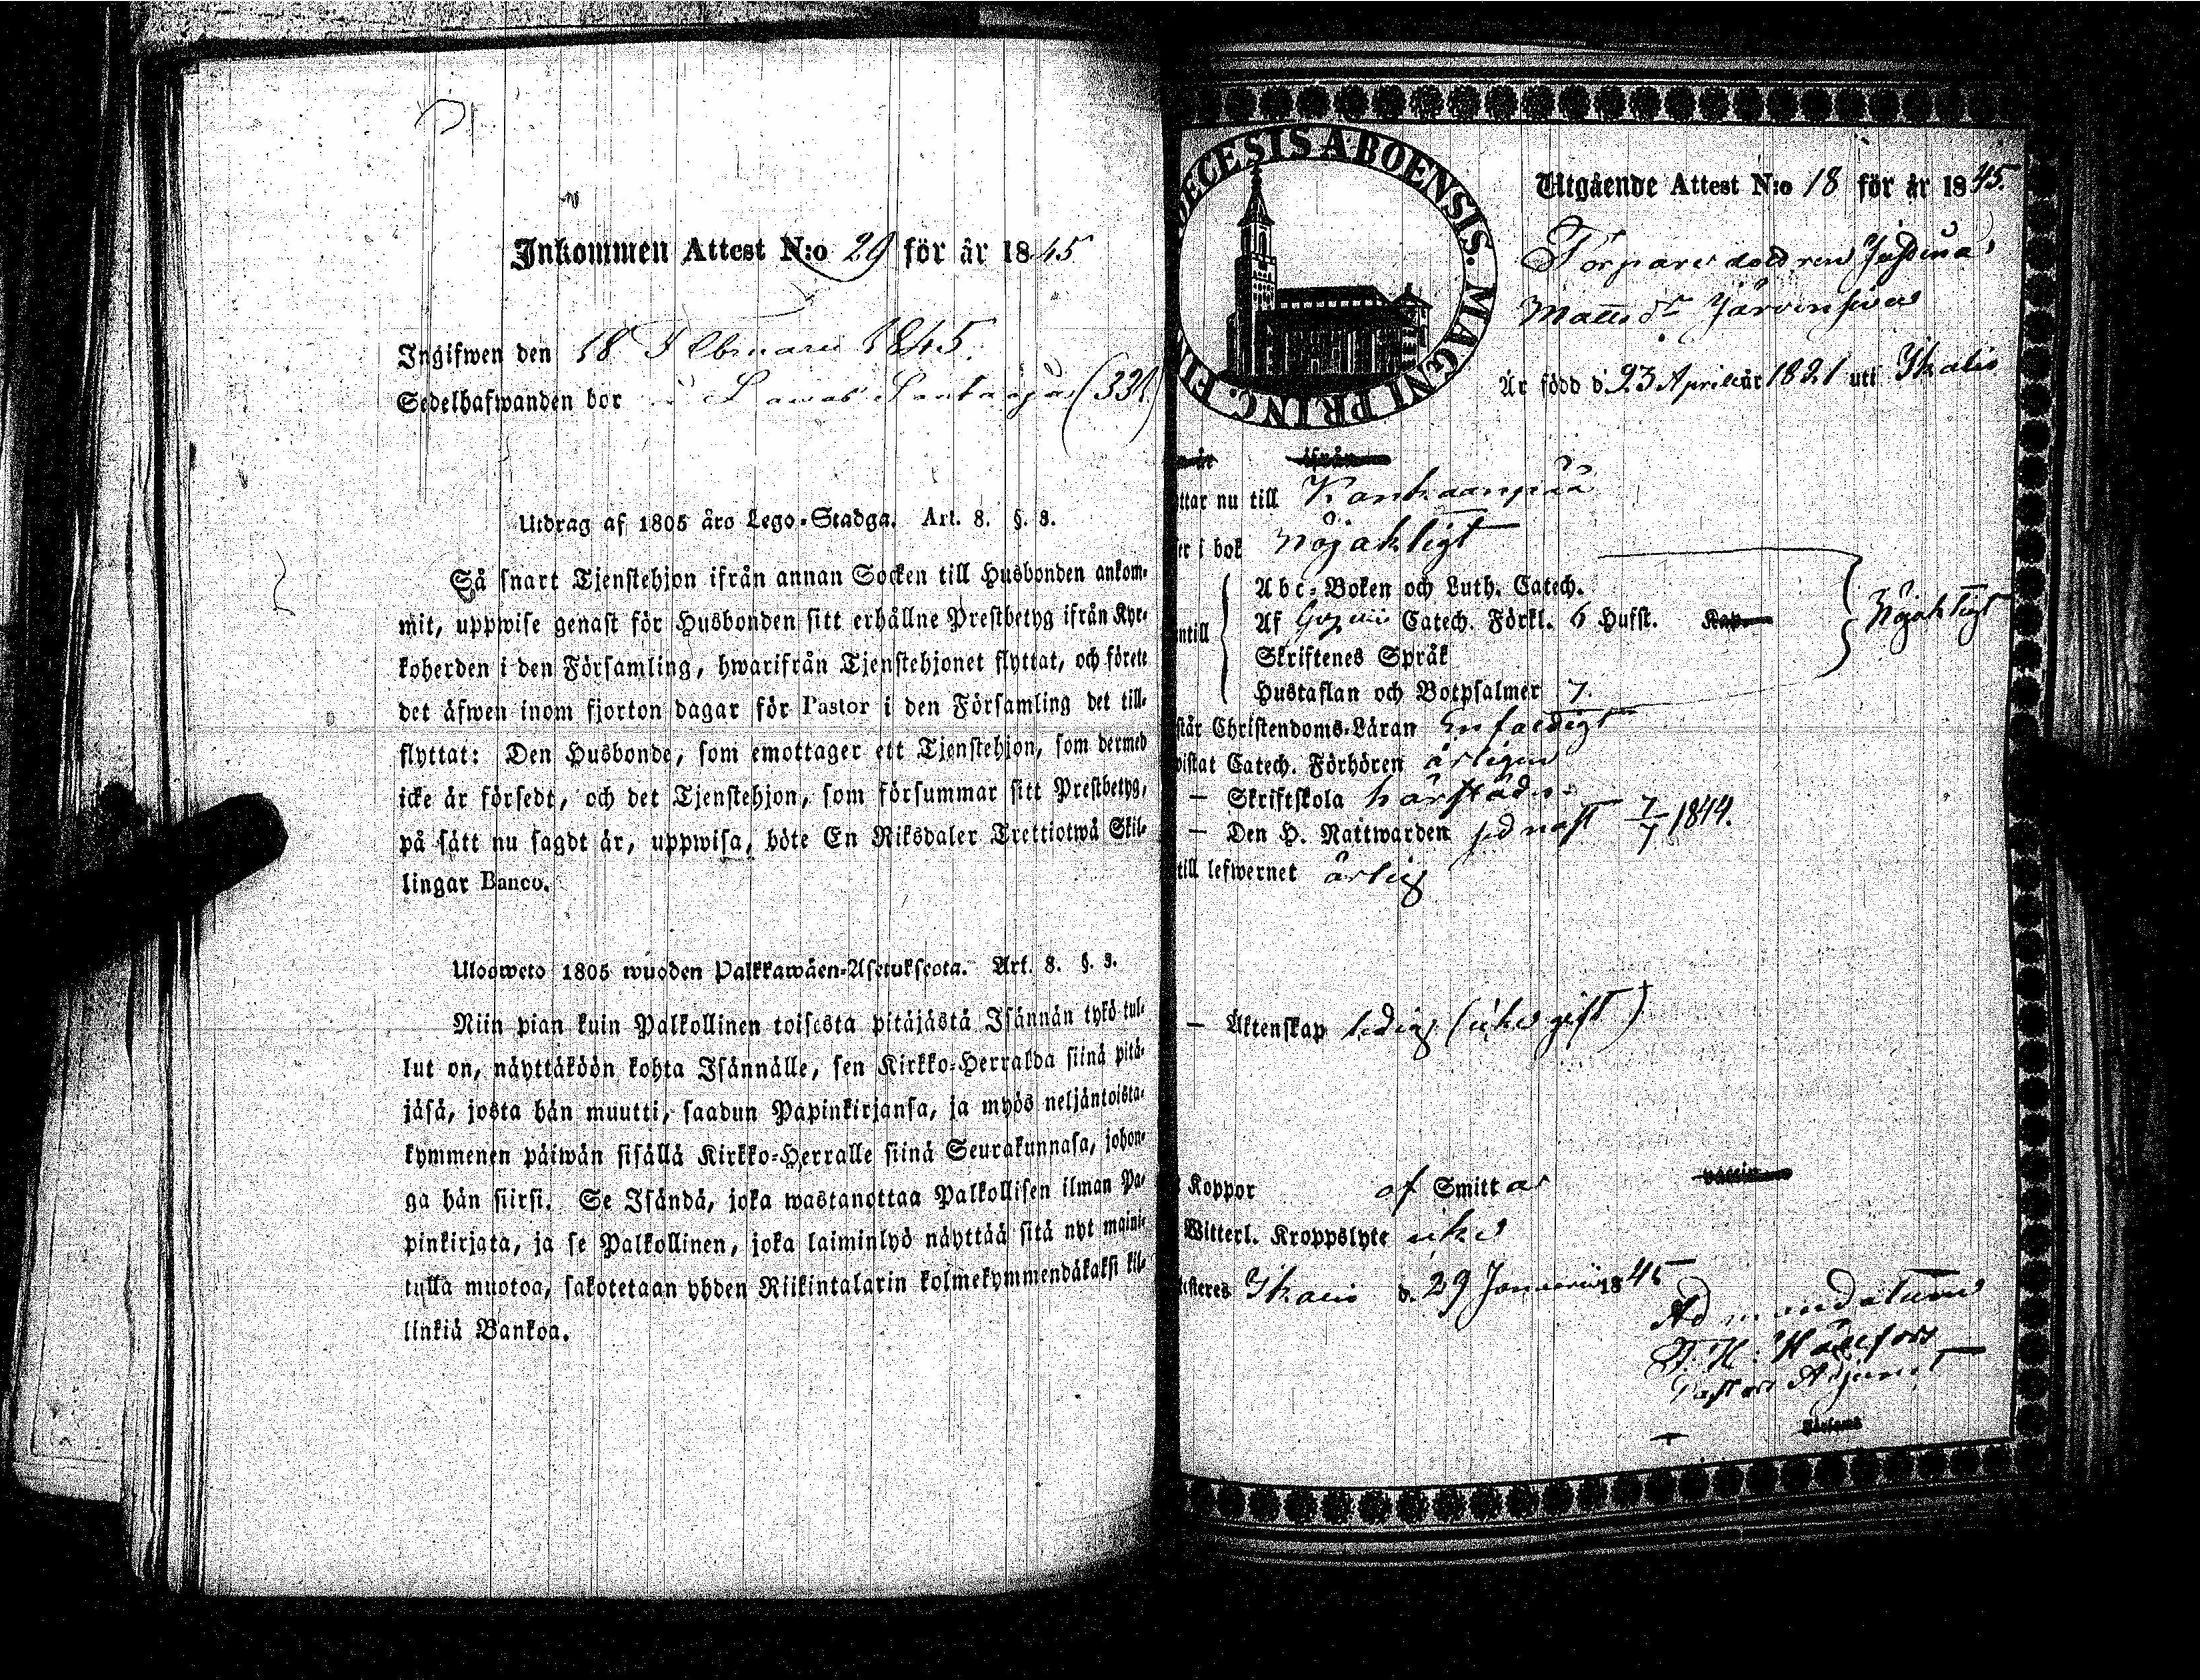 Inkommen Attest N:o 29 för år 1845
Ingifwen den 18 Februarii 1845.
Sedelhafwanden bor i (331)
Utdrag af 1805 års Lego-Stadga. Art. 8. §. 3.
Så snart Tjenstehjon ifrån annan Socken till Husbonden ankom-
mit, uppwise genast för Husbonden sitt erhållne Prestbetyg ifrån Kyr-
koherden i den Församling, hwarifrån Tjenstehjonet flyttat, och förete
det äfwen inom fjorton dagar för Pastor i den Församling det till-
flyttat: Den Husbonde, som emottager ett Tjenstehjon, som dermed
icke är försedt, och det Tjenstehjon, som försummar sitt Prestbetyg,
på sätt nu sagdt är, uppwisa, böte En Riksdaler Trettiotwå Skil-
lingar Banco.
Ulosweto 1805 wuoden Palkkawäen-Asetuksesta. Art. 8. §. 3.
Niin pian kuin Palkollinen toisesta pitäjästä Isännän tykö tul-
lut on, näyttäköön kohta Isännälle, sen Kirkko-Herralda siinä pitä-
jäsä, josta hän muutti, saadun Papinkirjansa, ja myös neljäntoista-
kymmenen päiwän sisällä Kirkko-Herralle siinä Seurakunnasa, johon-
ga hän siirsi. Se Isändä, joka wastanottaa Palkollisen ilman Pa-
pinkirjata, ja se Palkollinen, joka laiminlyö näyttää sitä nyt maini-
tulla muotoa, sakotetaan yhden Riikintalarin kolmekymmendäkaksi kil-
linkiä Bankoa.
ECESIS ABOENSIS. MAGNI PRINC. FIN
Utgående Attest N:o 18 för år 1845.
Torpare dottren Justina
Matts dr Järvensivu
Är född d. 23 Aprill år 1821 uti Ikalis
ifrån
ttar nu till Kankaanpää
er i bok nöjaktigt
Abc-Boken och Luth. Catech.
ntill Af Catech. Förkl. 6 Hufst. Kap. Nöjaktigt
Skriftenes Språk
Hustaflan och Botpsalmer 7.
står Christendoms-Läran Enfaldigt
wistat Catech. Förhören årligen
— Skriftskola härstädes
— Den H. Nattwarden sednast 7/7 1844.
till lefwernet ärlig
— Äktenskap ledig (icke gift)
Koppor af Smittas vaccin
Witterl. Kroppslyte icke
isteres Ikalis d. 29 Januarii 1845
Ad mandatum
Pastors Adjunct